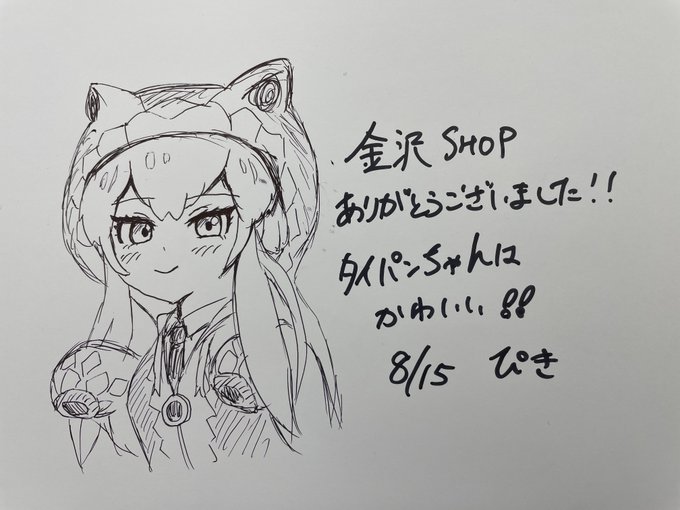 金沢 SHOP
ありがとうございました!!
タイパンちゃんは
かわいい!!
8/15 ぴき